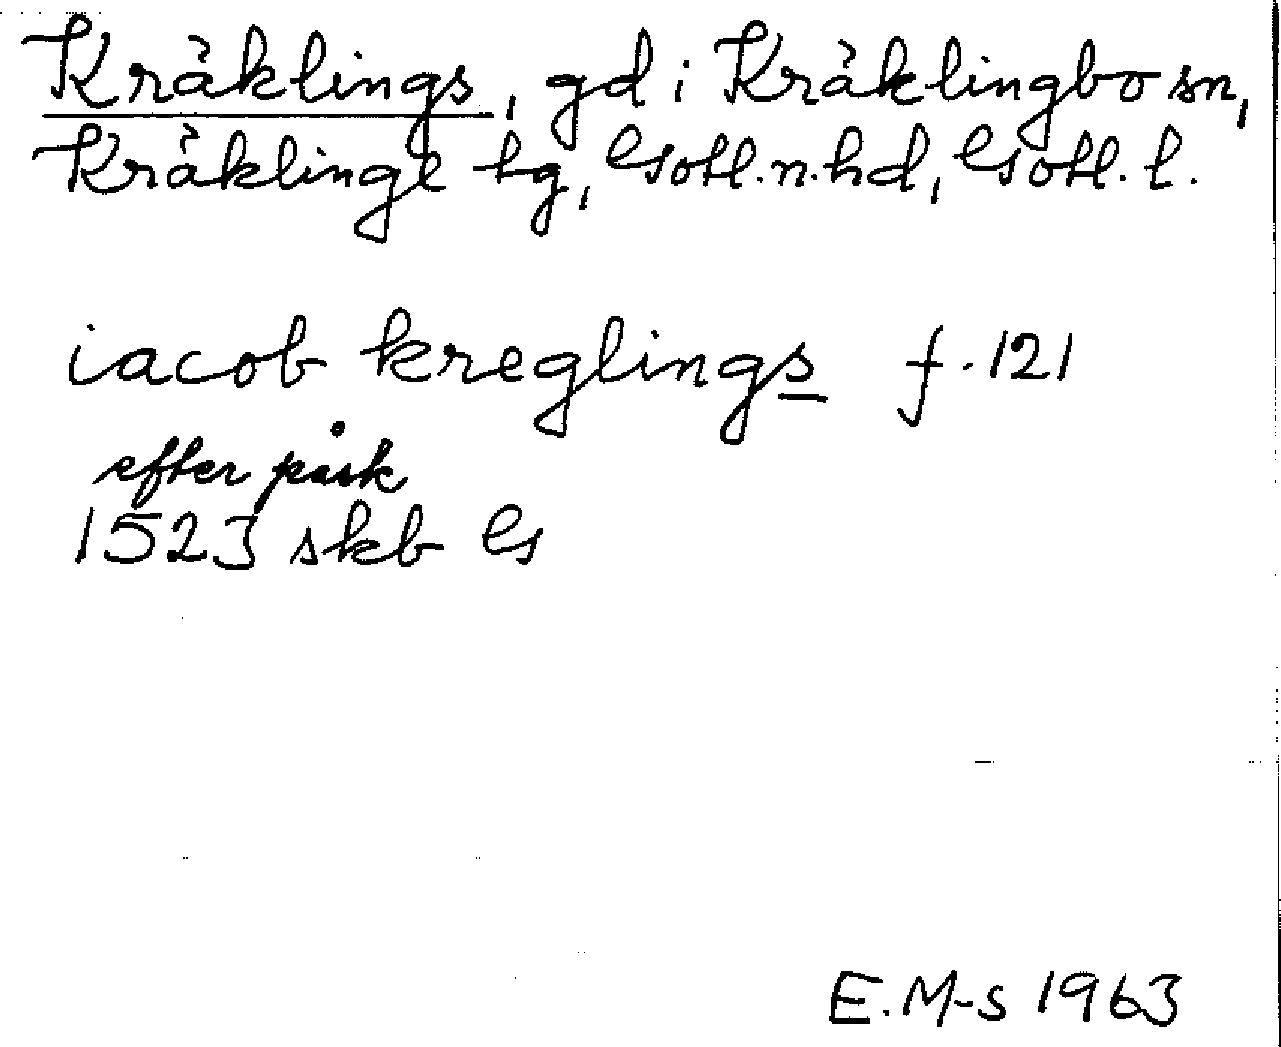 Kräklings, gd i Kräklingbo sn,
Kräklinge tg, Gotl. n. hd, Gotl. l.
iacob kreglings f. 121
efter påsk
1523 skb G
E. M-s 1963